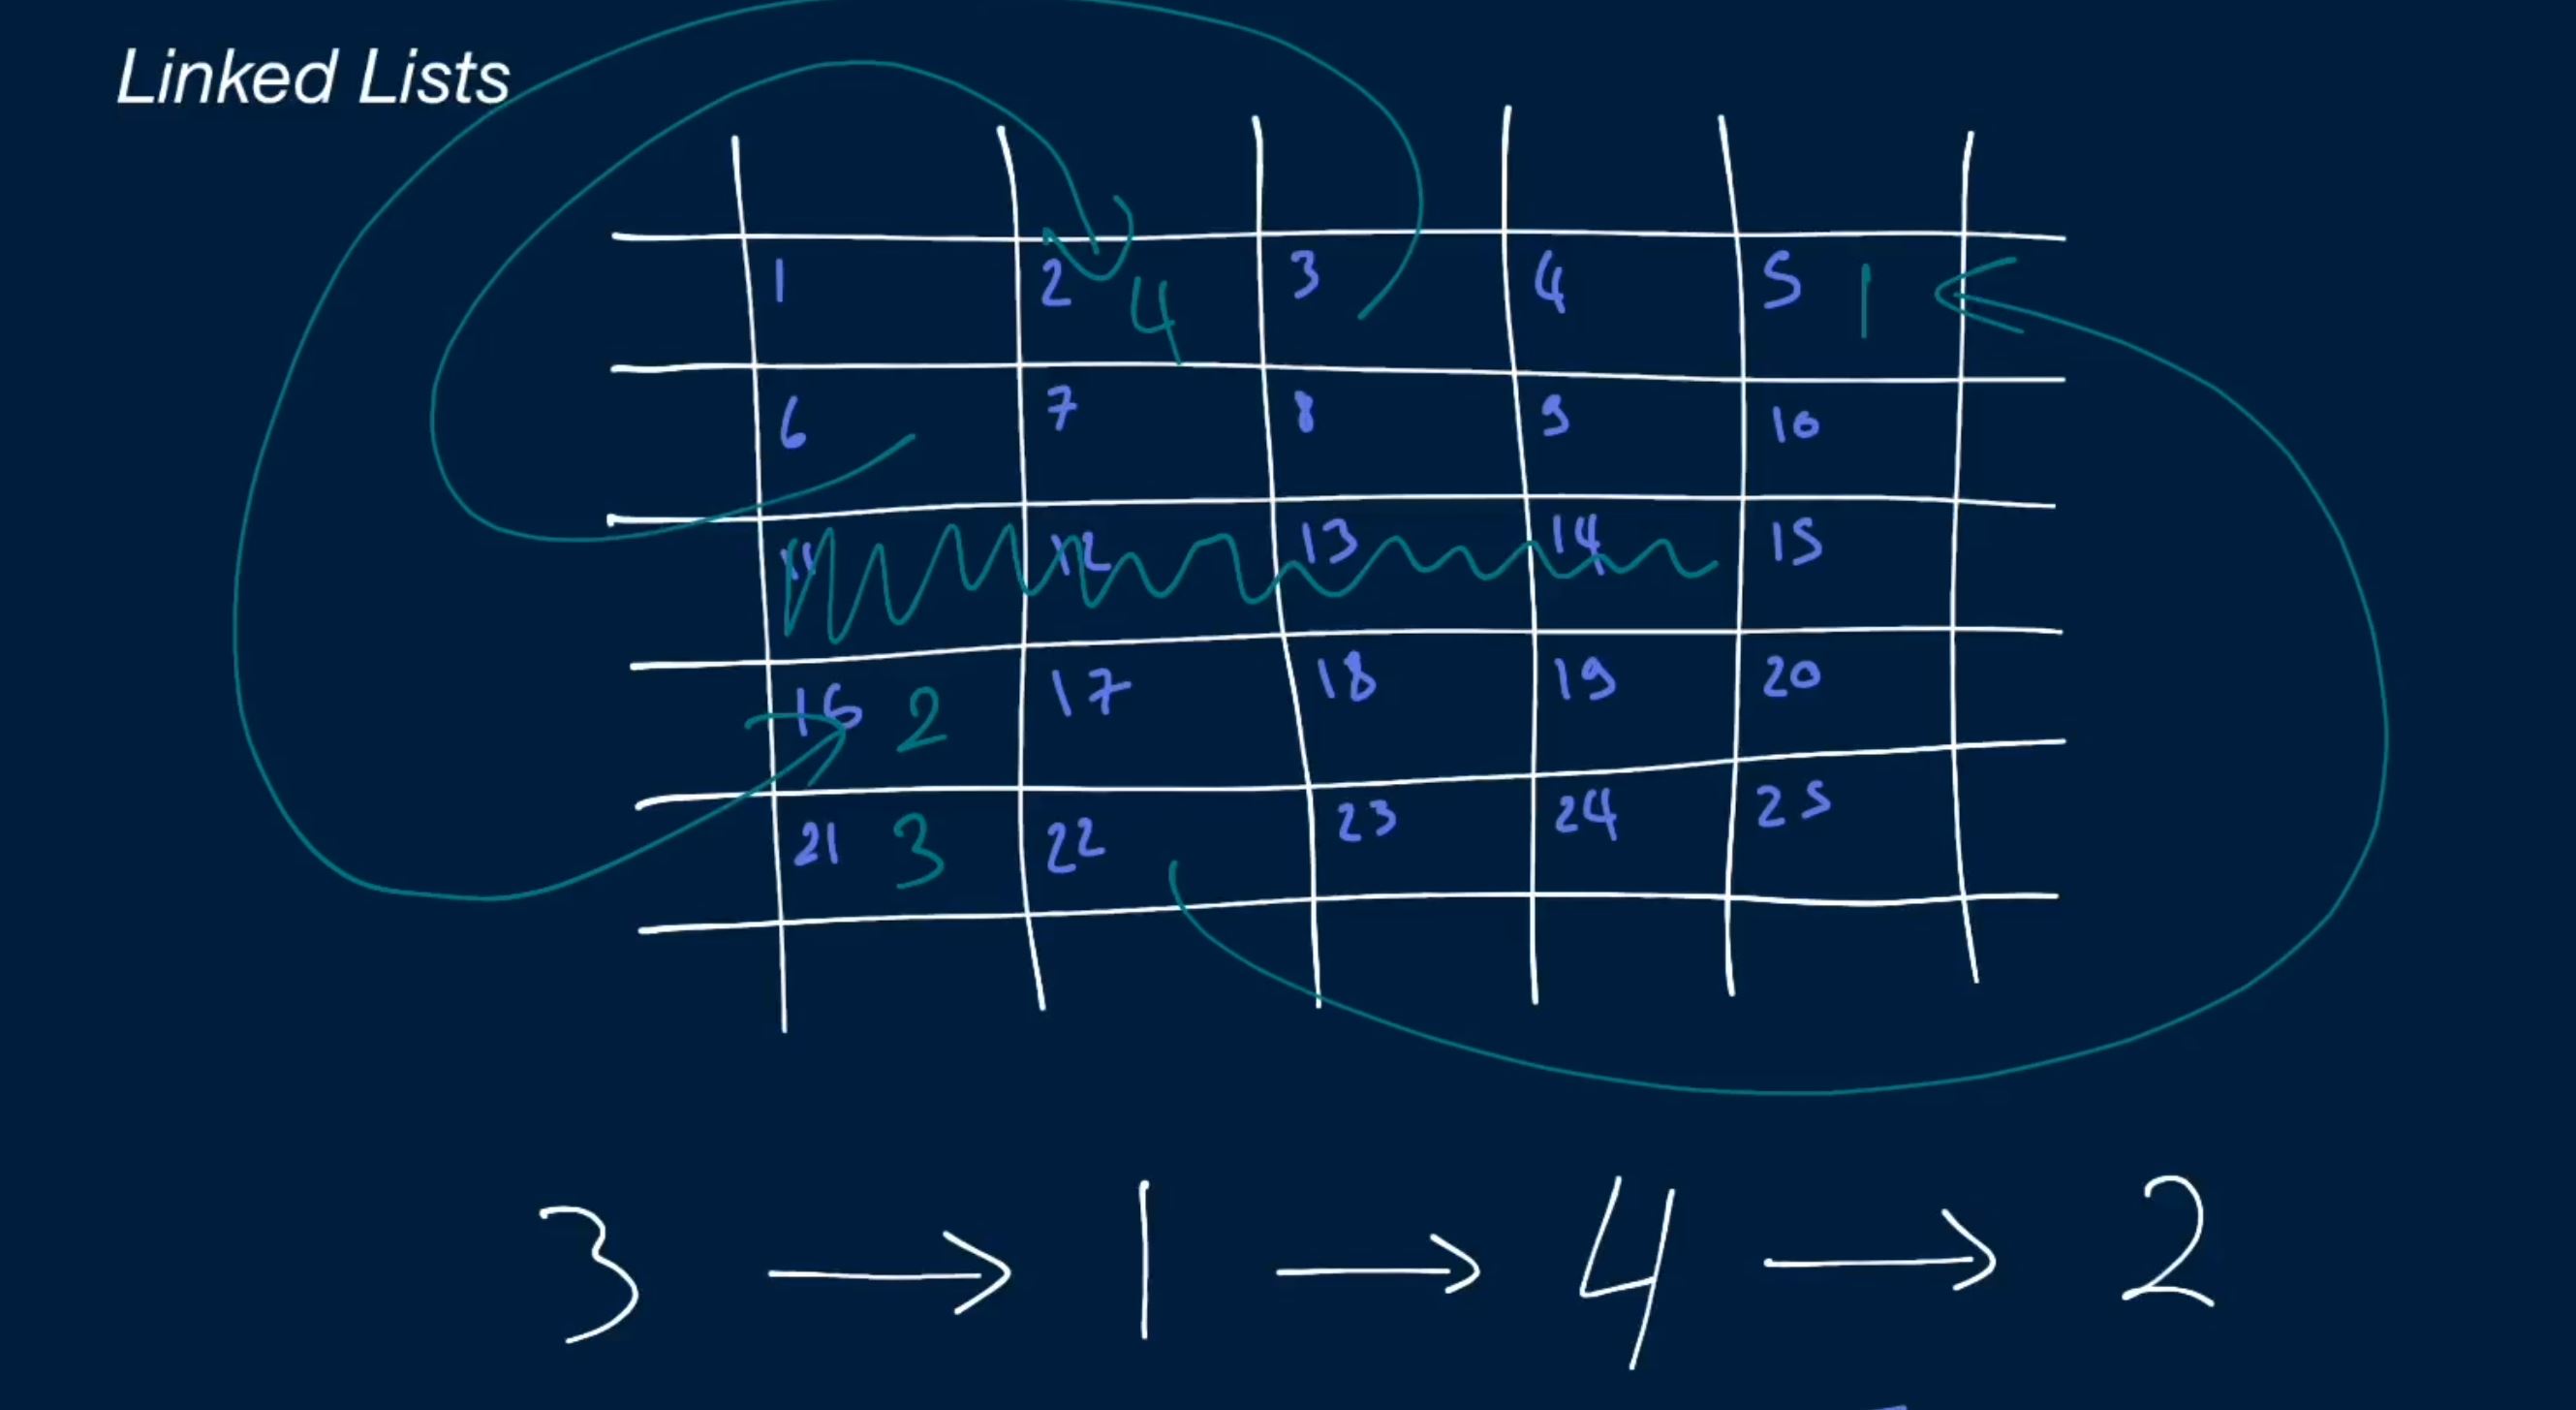 Linked Lists
1 2 4 3 4 5 1
6 7 8 9 10
11 12 13 14 15
16 2 17 18 19 20
21 3 22 23 24 25
3 → 1 → 4 → 2